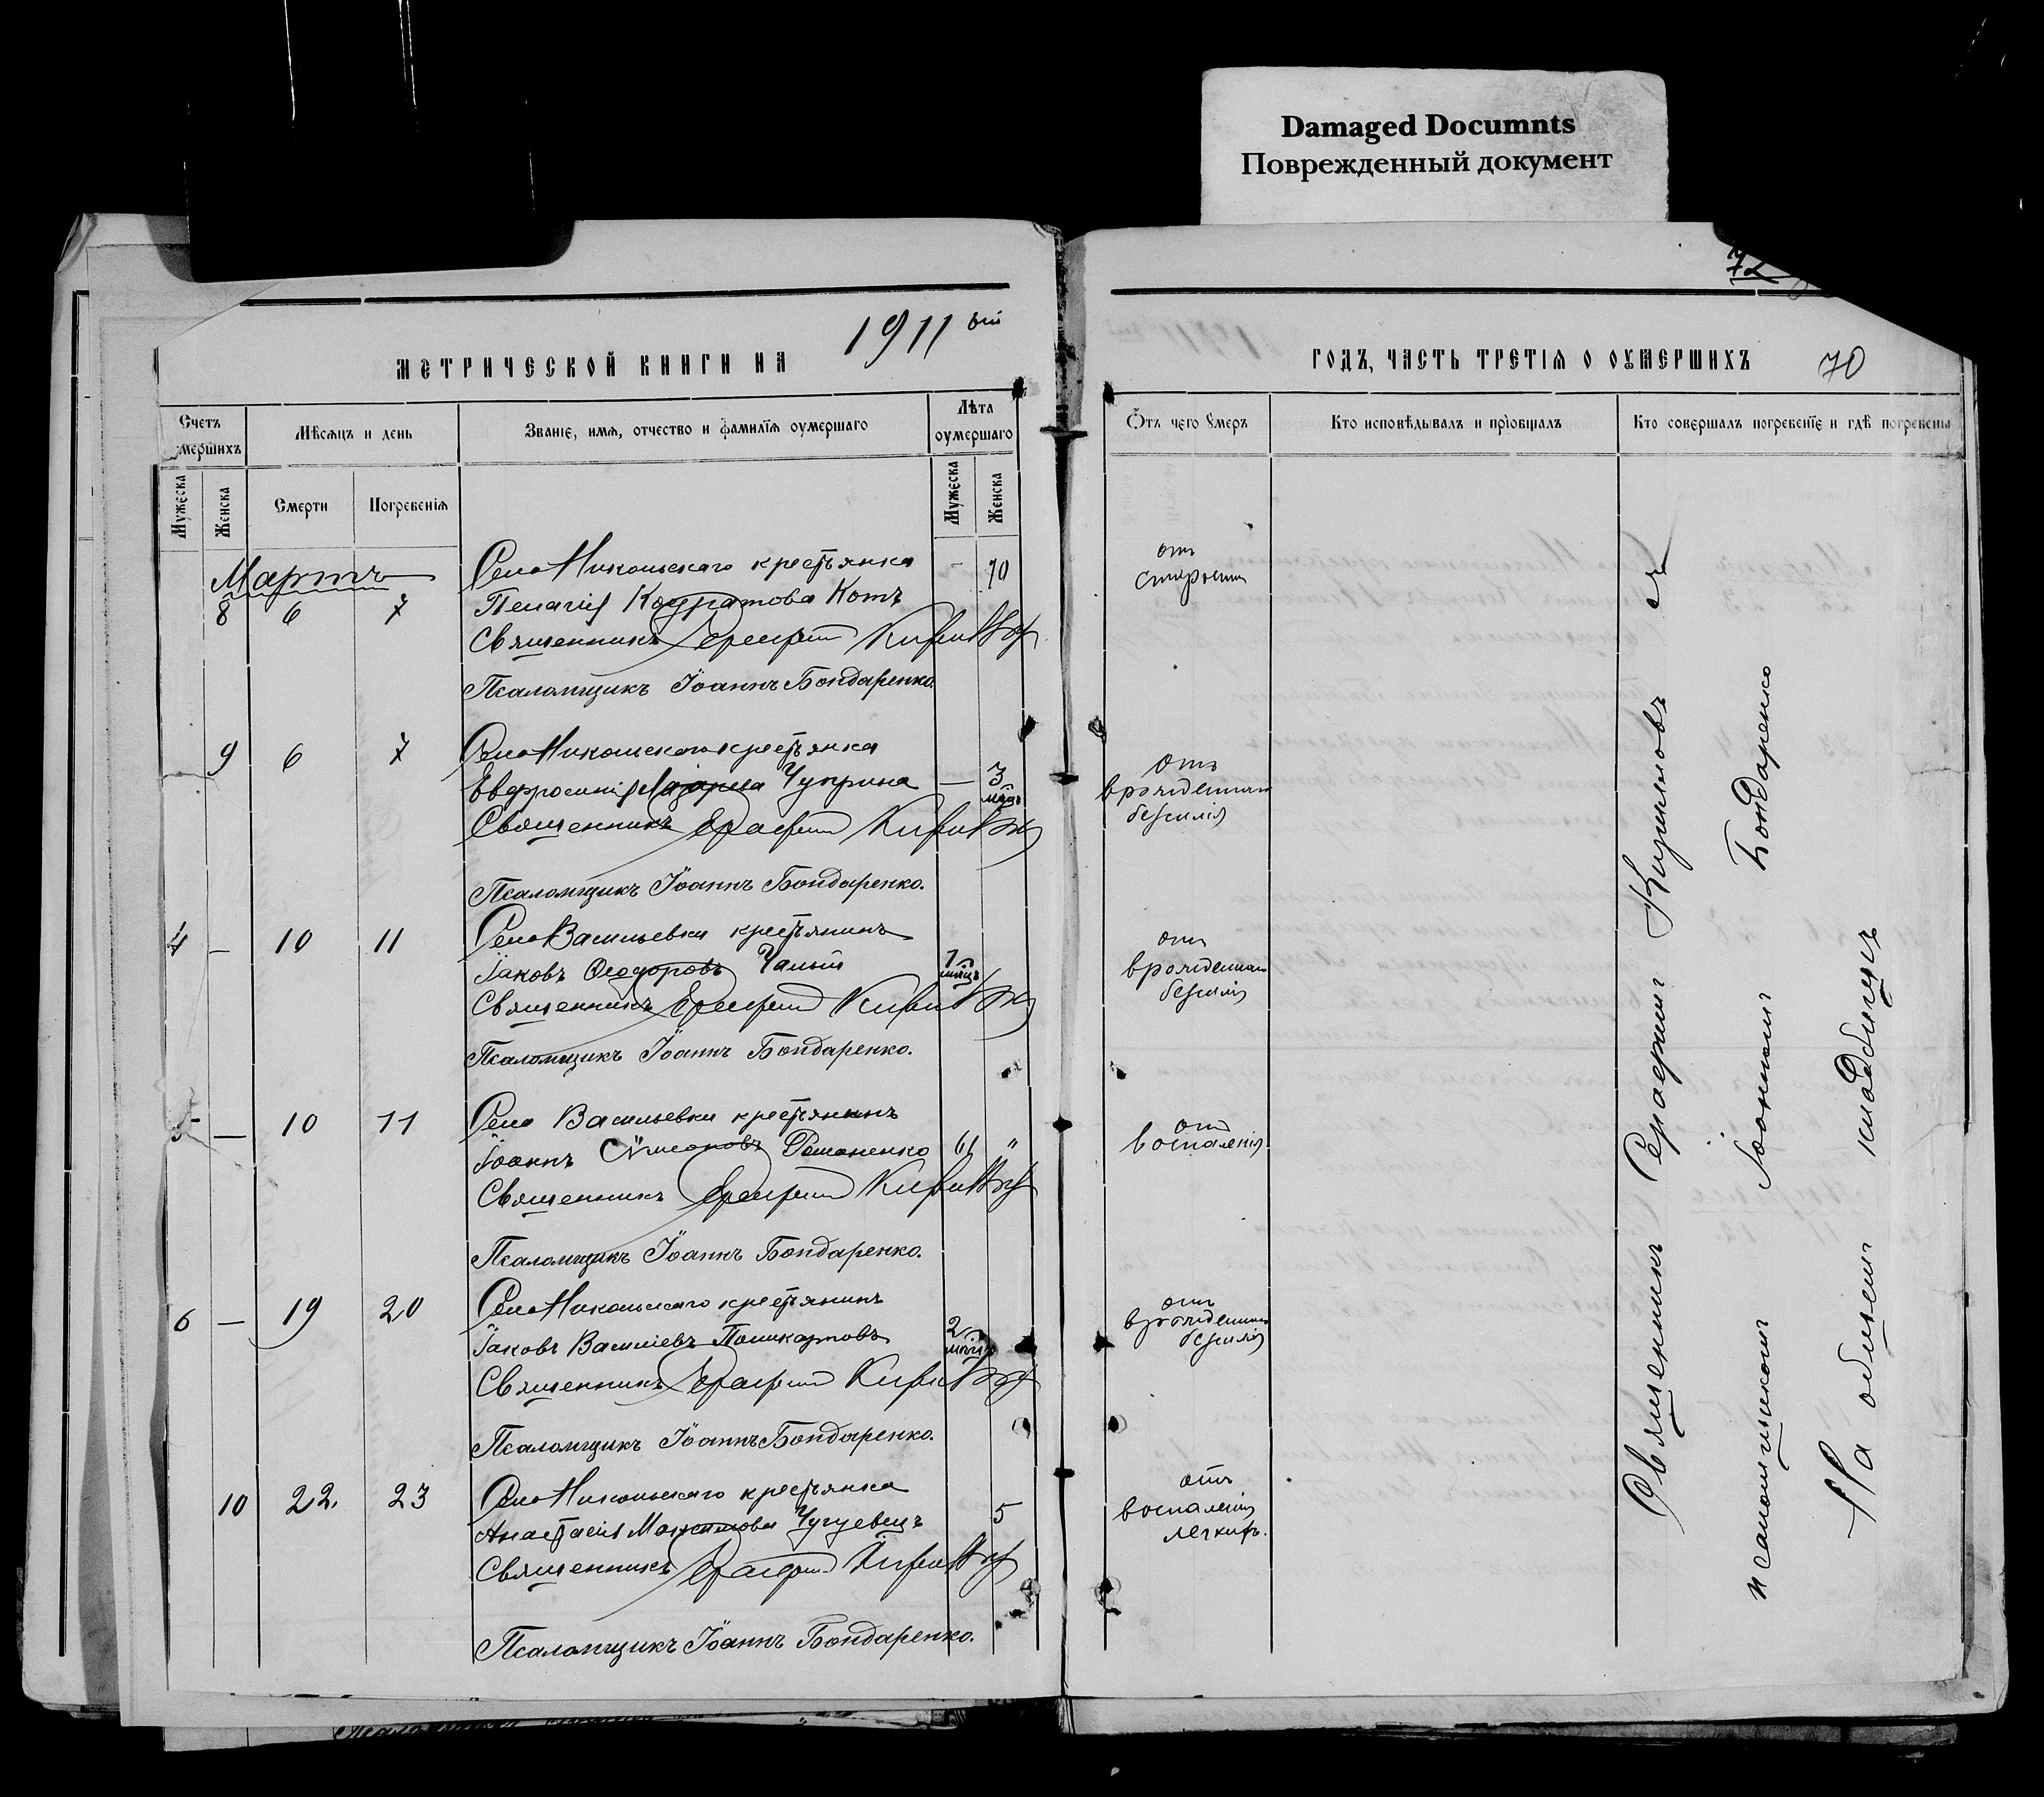 Damaged Documnts
Поврежденный документ
72
1911 ый
МЕТРИЧЕСКОЙ КНИГИ НА
ГОДЪ, ЧАСТЬ ТРЕТІЯ О ОУМЕРШИХЪ
70
Счетъ умершихъ
Мѣсяцъ и день
Званіе, имя, отчество и фамилія оумершаго
Лѣта оумершаго
Отъ чего умеръ
Кто исповѣдывалъ и пріобщалъ
Кто совершалъ погребеніе и гдѣ погребены
Мужеска
Женска
Смерти
Погребенія
Мужеска
Женска
Мартъ
Села Никольскаго крестьянка - 70 отъ старости
8 6 7 Пелагія Кондратова Котъ
Священникъ Серафим Кирил
Псаломщикъ Іоаннъ Бондаренко.
9 6 7 Села Никольскаго крестьянка
Евфросинія Лазарева Чуприна — 3 мѣсц отъ врожденнаго безсилія
Священникъ Серафим Кирил
Псаломщикъ Іоаннъ Бондаренко.
4 — 10 11 Села Васильевки крестьянинъ
Іаковъ Ѳеодоровъ Чалый мѣсцъ отъ врожденнаго безсилія
Священникъ Серафим Кирил
Псаломщикъ Іоаннъ Бондаренко.
5 — 10 11 Села Васильевки крестьянинъ
Іоаннъ Симеоновъ Романенко 61 " отъ воспаленія
Священникъ Серафим Кирил
Псаломщикъ Іоаннъ Бондаренко.
6 — 19 20 Села Никольскаго крестьянинъ
Іаковъ Василіевъ Поликарповъ 2 мѣсц отъ врожденнаго безсилія
Священникъ Серафим Кирил
Псаломщикъ Іоаннъ Бондаренко.
10 22. 23 Села Никольскаго крестьянка
Анастасія Максимова Чугуевецъ 5 отъ воспаленія легкихъ.
Священникъ Серафим Кирил
Псаломщикъ Іоаннъ Бондаренко.
Священникъ Серафим Кирилловъ съ
псаломщикомъ Іоанномъ Бондаренко
На общемъ кладбищѣ